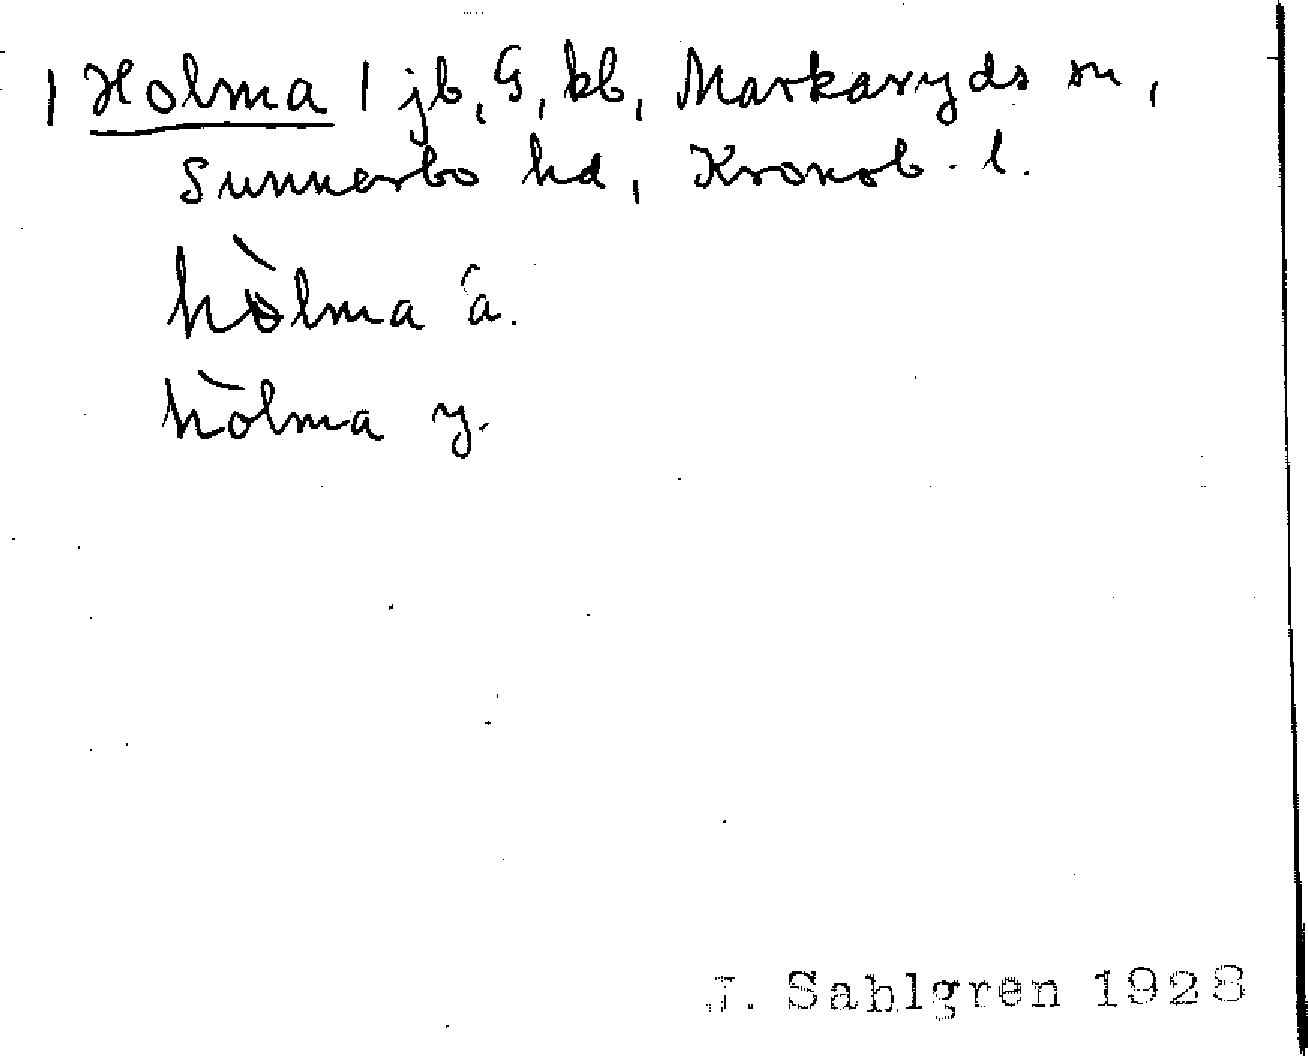 | Holma | jb, G, kb, Markaryds sn,
Sunnerbo hd, Kronob. l.
hòlma ä.
hòlma y.
J. Sahlgren 1928